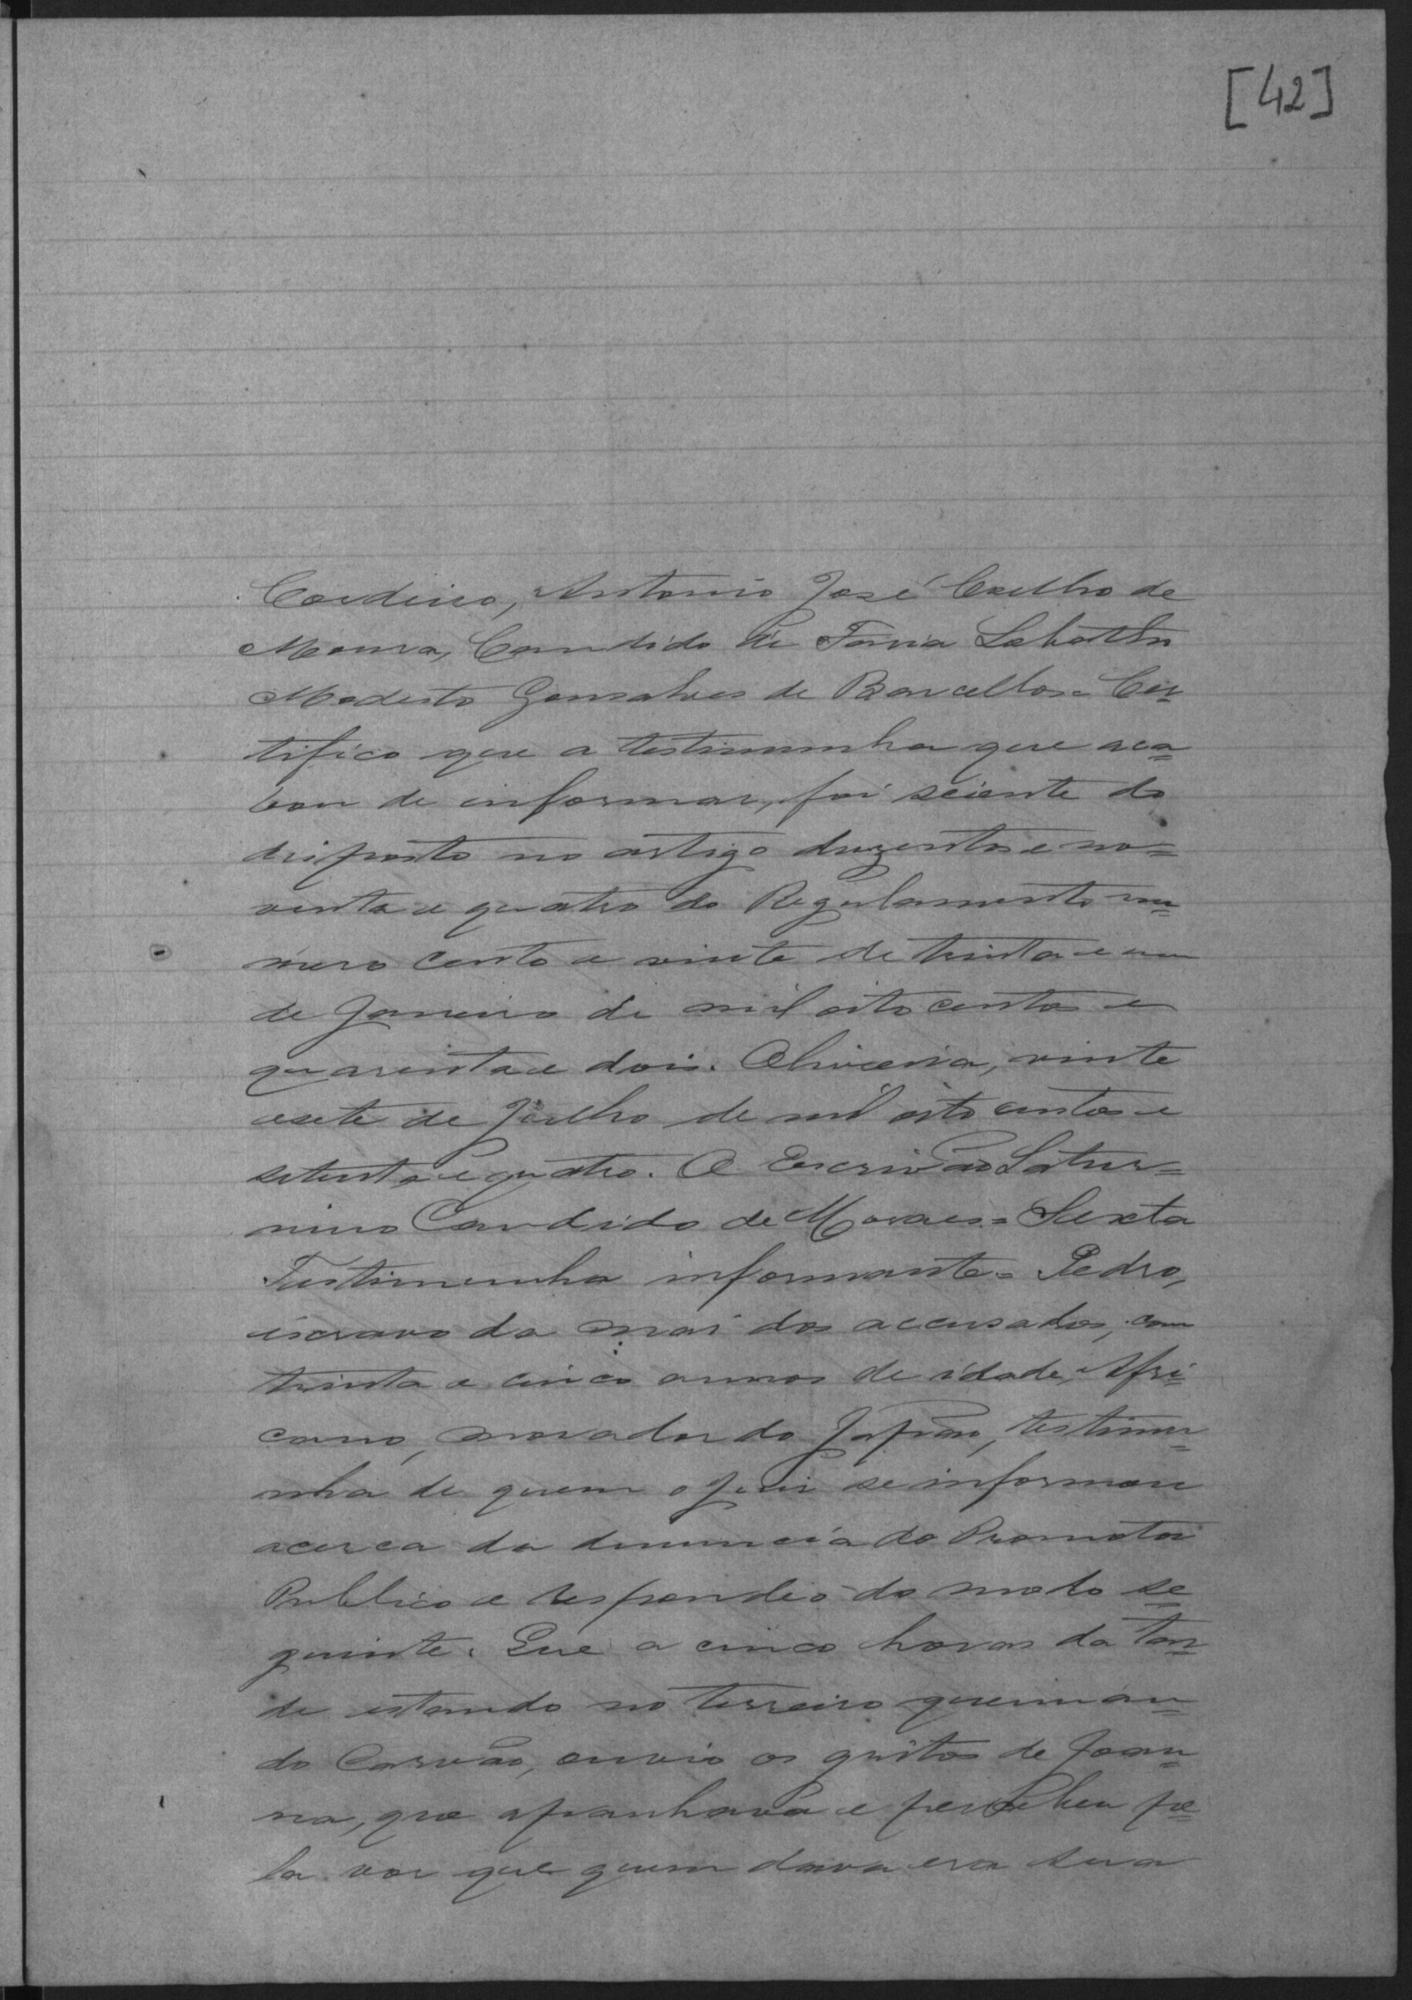 [42]
Cordeiro, Antonio José Coelho de
Moura, Candido de Faria Lobatto
Modesto Gonsalves de Barcellos = Cer-
tifico que a testimunha que aca-
bou de informar, foi sciente do
disposto no artigo duzentos e no-
venta e quatro do Regulamento nu-
mero cento e vinte de trinta e um
de Janeiro de mil oito centos e
quarenta e dois. Oliveira, vinte
e sete de Julho de mil oito centos e
setenta e quatro. O Escrivão Satur-
nino Candido de Moraes = Sexta
Testimunha informante = Pedro,
escravo da mai dos accusados, com
trinta e cinco annos de idade, Afri-
cano, morador do Japão, testimu-
nha de quem o Juiz se informou
acerca da denuncia do Promotor
Publico e respondeo do modo se-
guinte. Que a cinco horas da tar-
de estando no terreiro queiman-
do Carvão, ouvio os gritos de Joan-
na, que apanhava e percebeu pe-
la voz que quem dava era sua